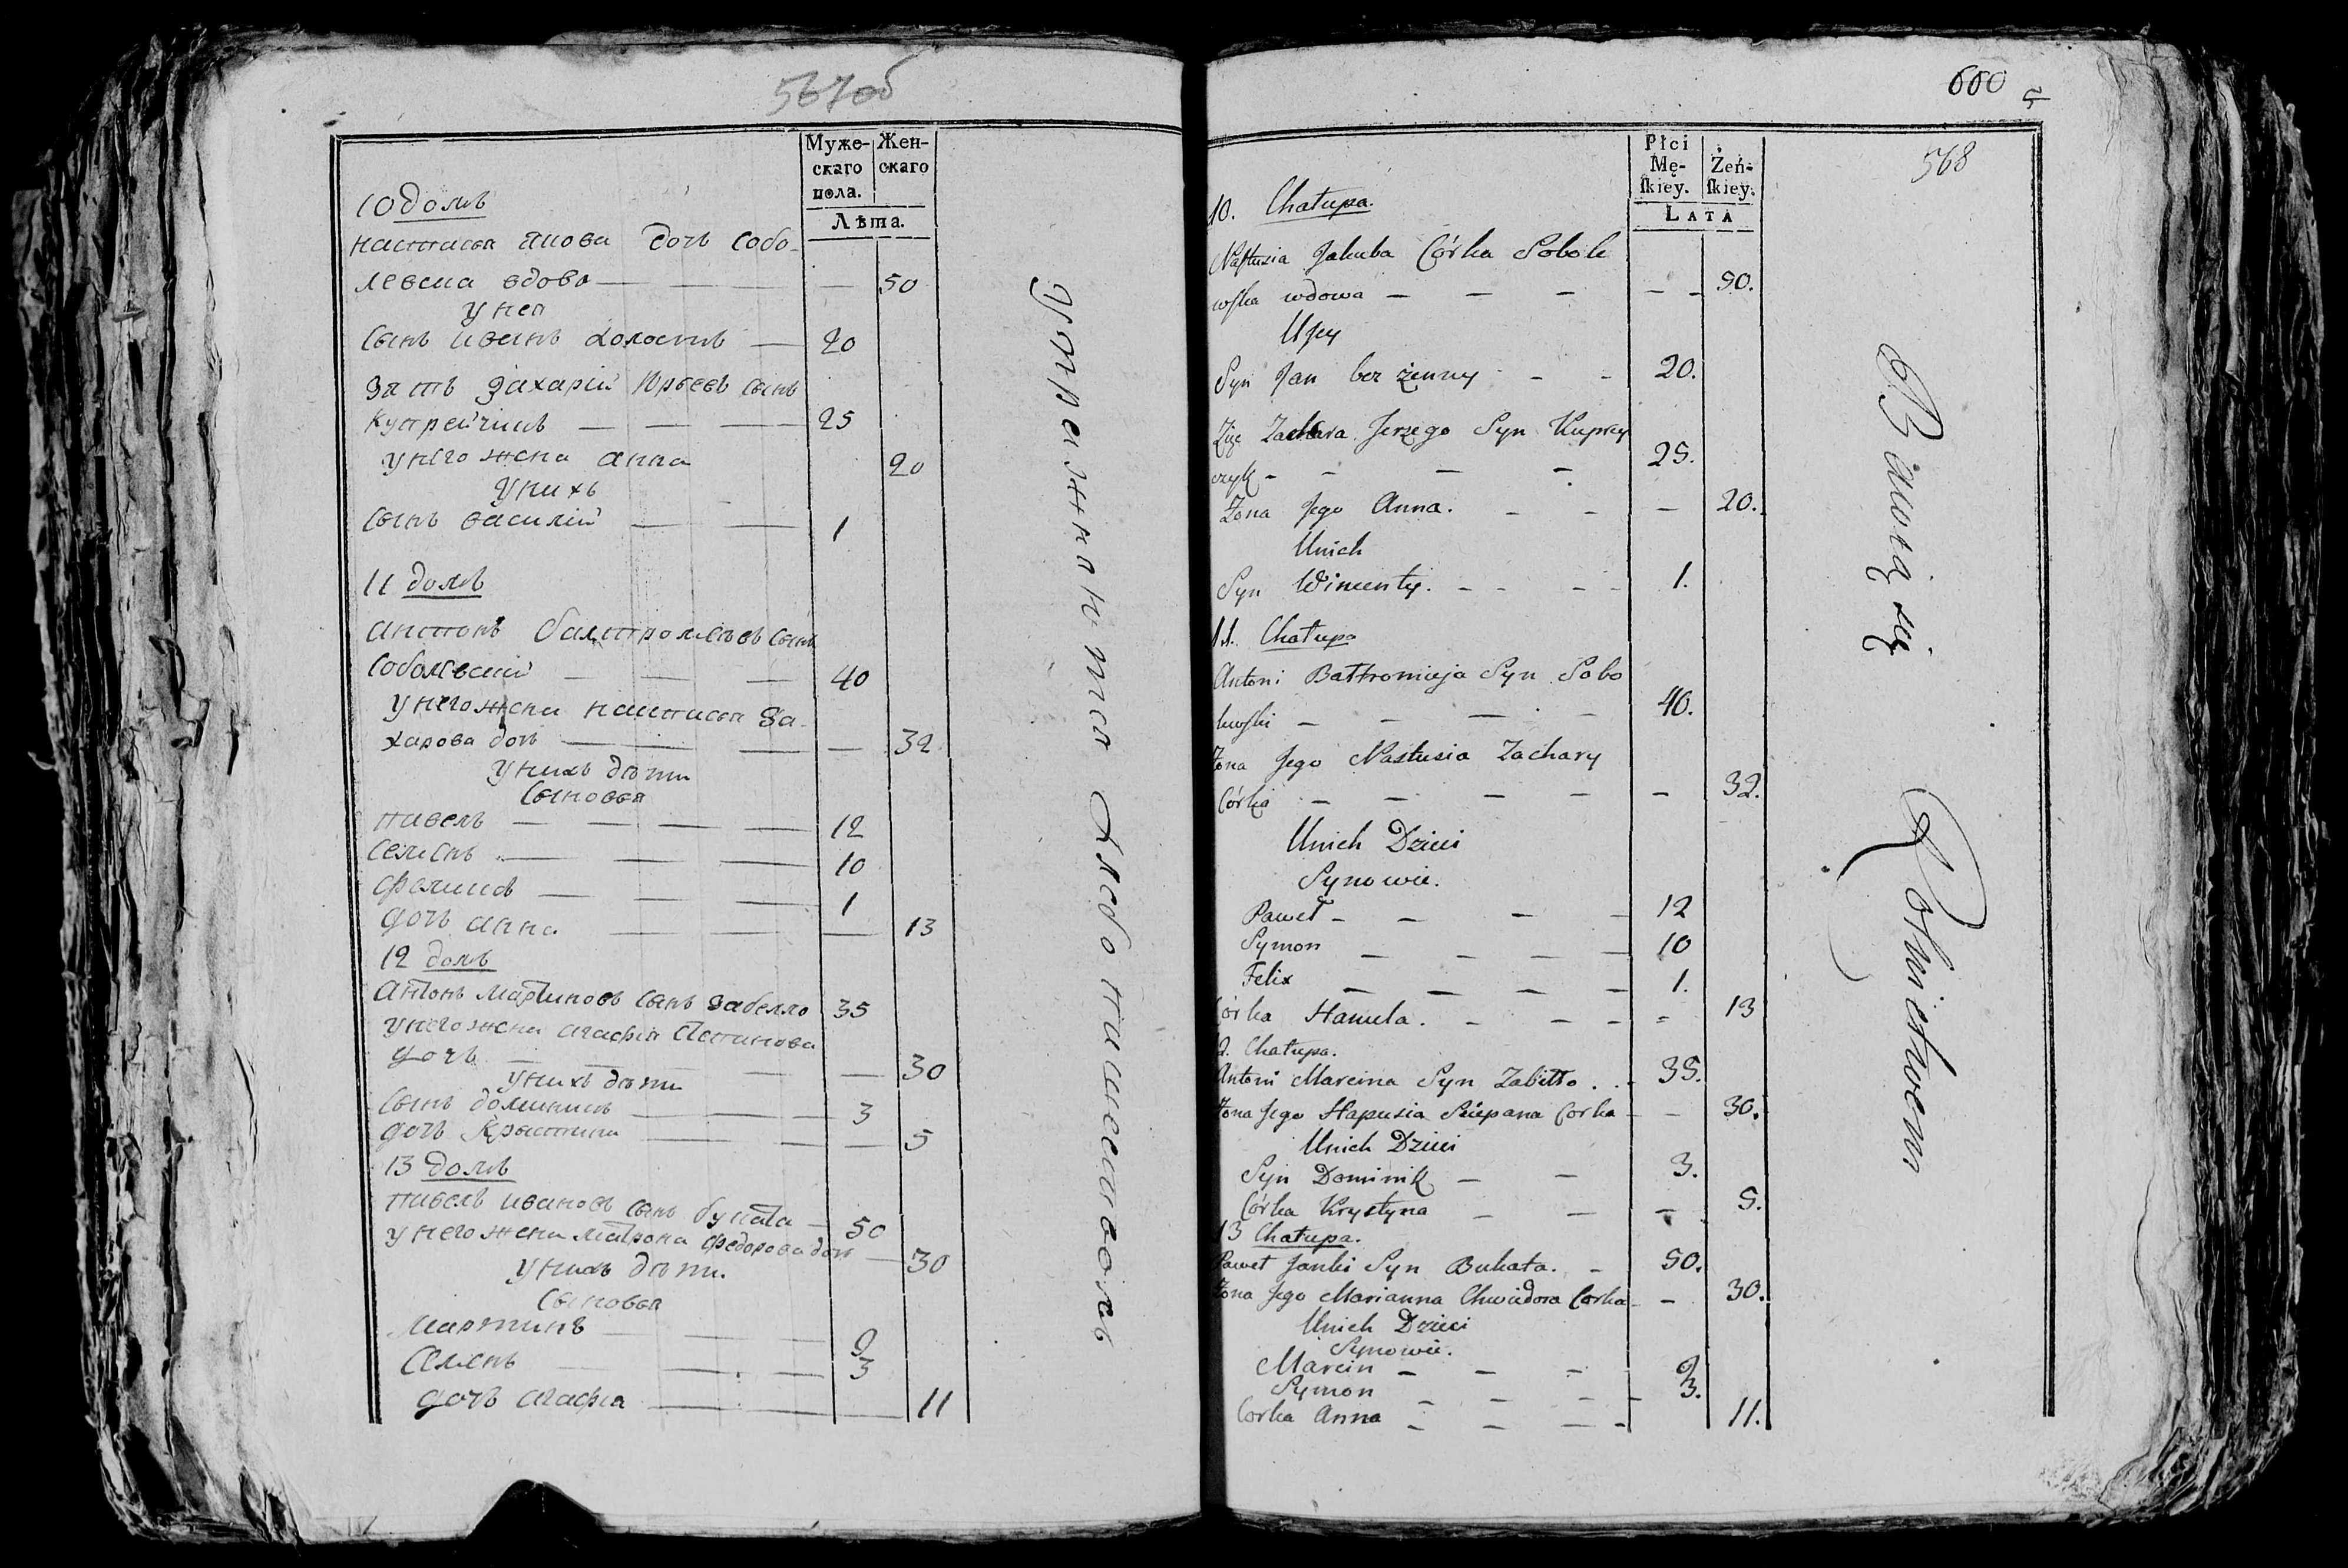 567об
Муже-
скаго
пола.
Жен-
скаго
Лѣта.
10 домъ
настасья якова дочь собо-
левска вдова — — — — 50
у нея
сынъ иванъ холостъ — 20
зять захарій юрьевъ сынъ
купрейчикъ — — — 25
у него жена анна 20
у нихъ
сынъ василій — — 1
11 домъ
антонъ балтромеевъ сынъ
соболевскій — — — 40
у него жена настасья за-
харова дочь — — — — 32
у нихъ дѣти
сыновья
павелъ — — — — 12
семенъ — — — 10
феликсъ — — — 1
дочь анна — — — — 13
12 домъ
антонъ мартиновъ сынъ забелло 35
у него жена агафія степанова
дочь — — — — 30
у нихъ дѣти
сынъ доминикъ — — 3
дочь крыстина — — — 5
13 домъ
павелъ ивановъ сынъ буката — 50
у него жена матрона федорова дочь — 30
у нихъ дѣти.
сыновья
мартинъ — — — 9
семенъ — — — 3
дочь агафія — — — 11
упражняются хлебопашествомъ
660
568
Płci
Mę-
ſkiey.
Żeń-
ſkiey.
LATA
10. Chałupa.
Nastusia Jakuba Córka Sobole
wska wdowa — — — — — 50.
U Jey
Syn Jan bez żenny — — 20.
Zięć Zachara Jerzego Syn Kuprey
czyk — — — — 25.
Żona Jego Anna. — — — 20.
Unich
Syn Wincenty. — — — — 1.
11. Chałupa
Antoni Bałtromieja Syn Sobo
lewski — — — — 40.
Żona Jego Nastusia Zachary
Córka — — — — — 32.
Unich Dzieci
Synowie.
Paweł — — — — 12
Symon — — — — 10
Felix — — — — 1.
Córka Hanula. — — — = 13
2. Chałupa.
Antoni Marcina Syn Zabiełło . . 35.
Żona Jego Hapusia Sciepana Corka — — 30.
Unich Dzieci
Syn Dominik — — 3.
Córka Krystyna — — — 5.
13 Chałupa.
Paweł Janki Syn Bukata. — 50.
Żona Jego Marianna Chwiedora Corka — — 30.
Unich Dzieci
Synowie.
Marcin — — — 9
Symon — — — — 3.
Corka Anna — — — — 11.
Bawią się Rolnictwem